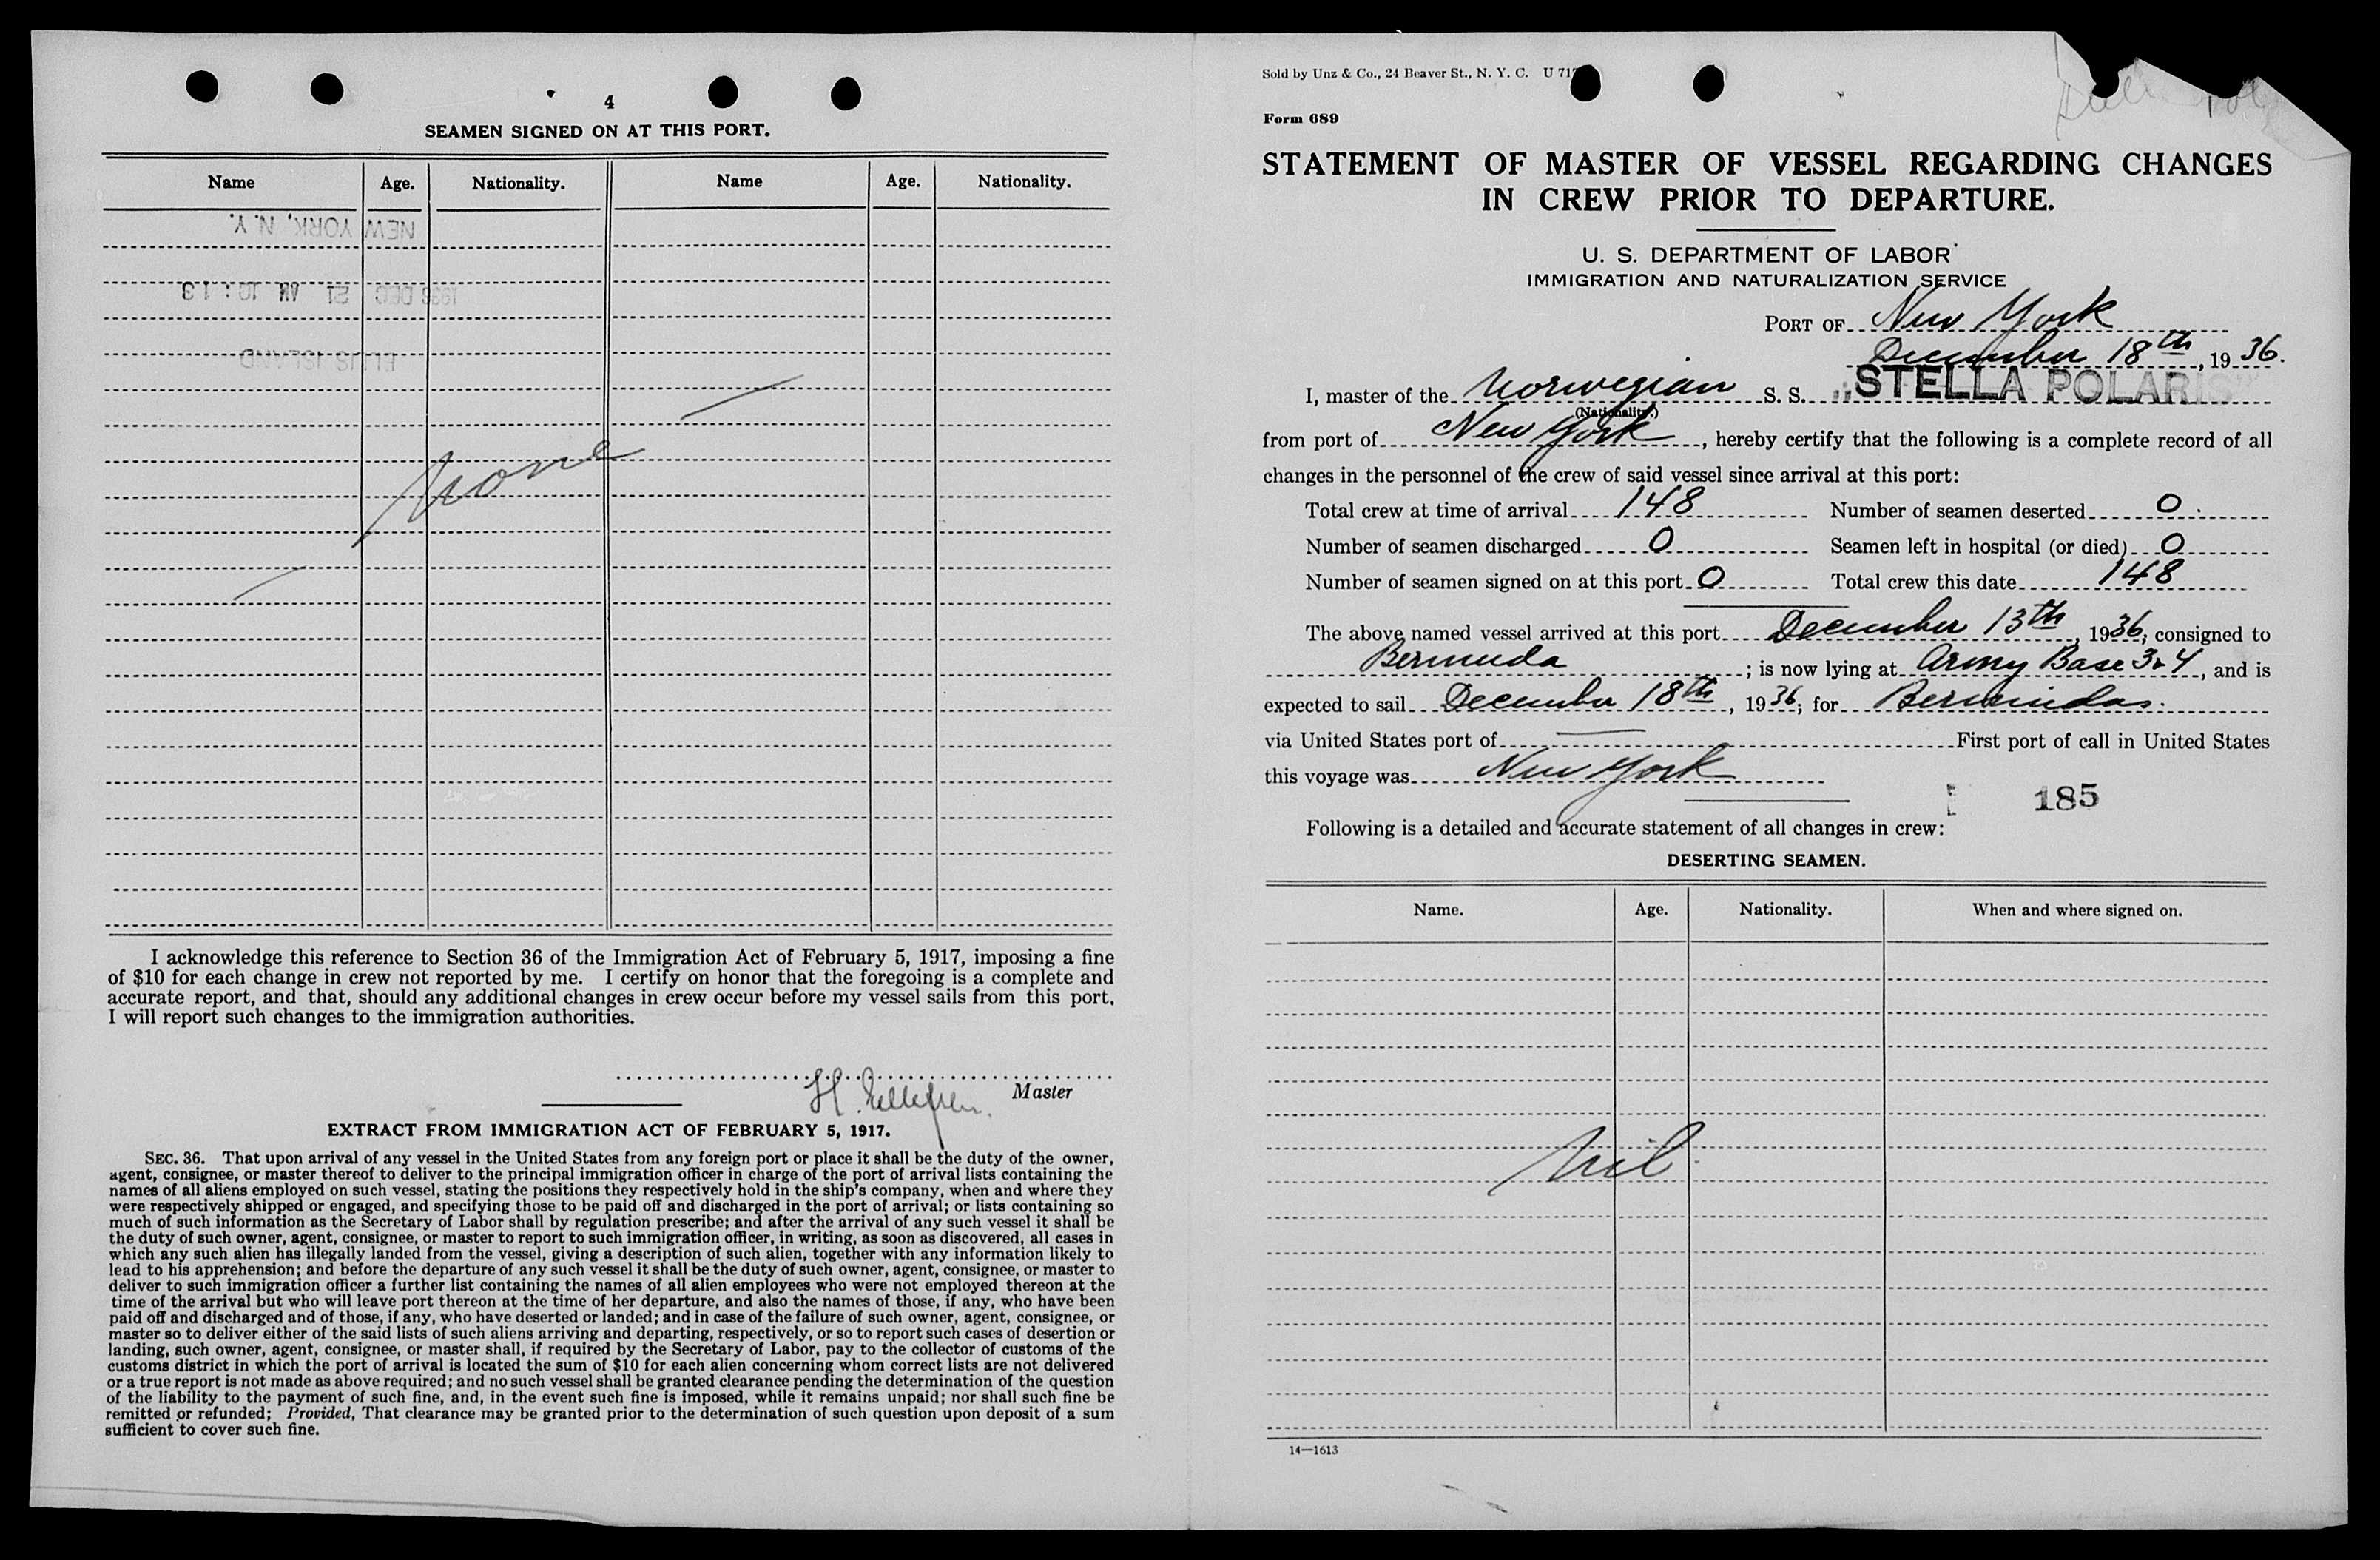 4
SEAMEN SIGNED ON AT THIS PORT.
Name Age. Nationality. Name Age. Nationality.
NEW YORK, N.Y.
DEC 21 AM 10:13
ELLIS ISLAND
None
I acknowledge this reference to Section 36 of the Immigration Act of February 5, 1917, imposing a fine
of $10 for each change in crew not reported by me. I certify on honor that the foregoing is a complete and
accurate report, and that, should any additional changes in crew occur before my vessel sails from this port,
I will report such changes to the immigration authorities.
H.
Master
EXTRACT FROM IMMIGRATION ACT OF FEBRUARY 5, 1917.
SEC. 36. That upon arrival of any vessel in the United States from any foreign port or place it shall be the duty of the owner,
agent, consignee, or master thereof to deliver to the principal immigration officer in charge of the port of arrival lists containing the
names of all aliens employed on such vessel, stating the positions they respectively hold in the ship's company, when and where they
were respectively shipped or engaged, and specifying those to be paid off and discharged in the port of arrival; or lists containing so
much of such information as the Secretary of Labor shall by regulation prescribe; and after the arrival of any such vessel it shall be
the duty of such owner, agent, consignee, or master to report to such immigration officer, in writing, as soon as discovered, all cases in
which any such alien has illegally landed from the vessel, giving a description of such alien, together with any information likely to
lead to his apprehension; and before the departure of any such vessel it shall be the duty of such owner, agent, consignee, or master to
deliver to such immigration officer a further list containing the names of all alien employees who were not employed thereon at the
time of the arrival but who will leave port thereon at the time of her departure, and also the names of those, if any, who have been
paid off and discharged and of those, if any, who have deserted or landed; and in case of the failure of such owner, agent, consignee, or
master so to deliver either of the said lists of such aliens arriving and departing, respectively, or so to report such cases of desertion or
landing, such owner, agent, consignee, or master shall, if required by the Secretary of Labor, pay to the collector of customs of the
customs district in which the port of arrival is located the sum of $10 for each alien concerning whom correct lists are not delivered
or a true report is not made as above required; and no such vessel shall be granted clearance pending the determination of the question
of the liability to the payment of such fine, and, in the event such fine is imposed, while it remains unpaid; nor shall such fine be
remitted or refunded; Provided, That clearance may be granted prior to the determination of such question upon deposit of a sum
sufficient to cover such fine.
Sold by Unz & Co., 24 Beaver St., N. Y. C. U 717
Form 689
STATEMENT OF MASTER OF VESSEL REGARDING CHANGES
IN CREW PRIOR TO DEPARTURE.
U. S. DEPARTMENT OF LABOR
IMMIGRATION AND NATURALIZATION SERVICE
PORT OF New York
December 18th, 1936.
I, master of the Norwegian S. S. "STELLA POLARIS"
(Nationality.)
from port of New York, hereby certify that the following is a complete record of all
changes in the personnel of the crew of said vessel since arrival at this port:
Total crew at time of arrival 148 Number of seamen deserted 0
Number of seamen discharged 0 Seamen left in hospital (or died) 0
Number of seamen signed on at this port 0 Total crew this date 148
The above named vessel arrived at this port December 13th, 1936, consigned to
Bermuda; is now lying at Army Base 3 & 4, and is
expected to sail December 18th, 1936; for Bermudas.
via United States port of — First port of call in United States
this voyage was New York
185
Following is a detailed and accurate statement of all changes in crew:
DESERTING SEAMEN.
Name. Age. Nationality. When and where signed on.
Nil.
14—1613